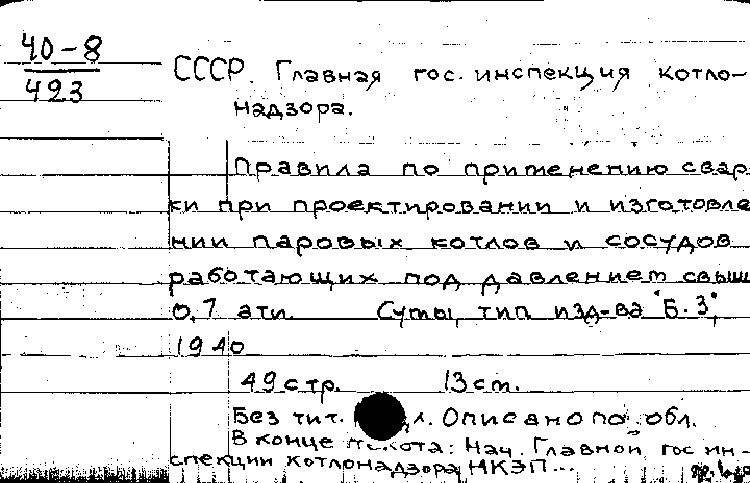 40-8
493
СССР. Главная гос. инспекция котло-
надзора.
Правила по применению свар
ки при проектировании и изготовле
нии паровых котлов и сосудов
работающих под давлением свыш
0,7 ати. Сумы, тип. изд-ва "Б. З",
1940
49 стр. 13 cm.
Без тит. л. Описано по обл.
В конце текста: Нач. Главной гос ин-
спекции котлонадзора НКЭП...